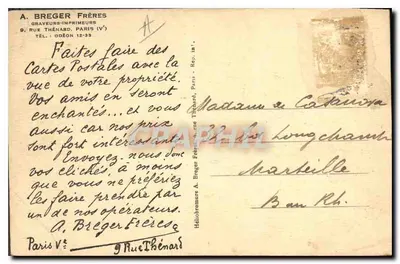 A. BREGER FRÈRES
GRAVEURS-IMPRIMEURS
9, RUE THÉNARD, PARIS (Vᵉ)
TÉL. : ODÉON 12-35
Faites faire des
Cartes Postales avec la
vue de votre propriété.
Vos amis en seront
enchantés... et vous
aussi car nos prix
sont fort intéressants
Envoyez-nous donc
vos clichés, à moins
que vous ne préfériez
les faire prendre par
un de nos opérateurs.
A. Breger Frères
Paris Vᵉ 9 Rue Thénard
Héliochromie A. Breger Frères, Thénard, Paris
Madame de Casanova
Longchamp
Marseille
B du Rh.